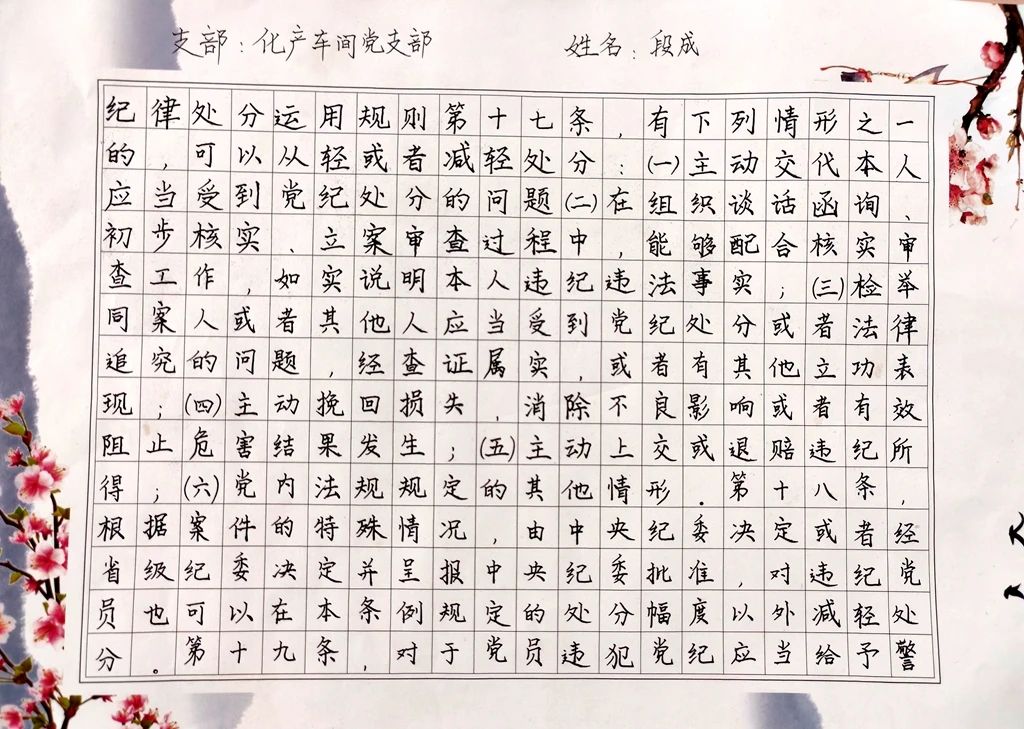 支部：化产车间党支部 姓名：段成
纪律处分运用规则第十七条，有下列情形之一
的，可以从轻或者减轻处分：㈠主动交代本人
应当受到党纪处分的问题㈡在组织谈话函询、
初步核实、立案审查过程中，能够配合核实审
查工作，如实说明本人违纪违法事实；㈢检举
同案人或者其他人应当受到党纪处分或者法律
追究的问题，经查证属实，或者有其他立功表
现；㈣主动挽回损失，消除不良影响或者有效
阻止危害结果发生；㈤主动上交或退赔违纪所
得；㈥党内法规规定的其他情形。第十八条，
根据案件的特殊情况，由中央纪委决定或者经
省级纪委决定并呈报中央纪委批准，对违纪党
员也可以在本条例规定的处分幅度以外减轻处
分。第十九条，对于党员违犯党纪应当给予警